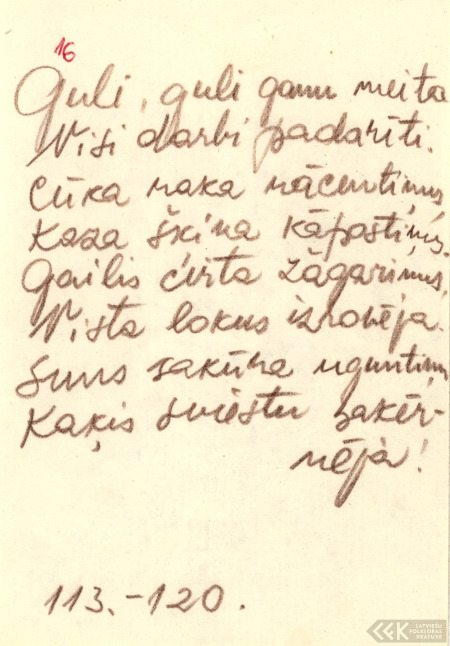 16
Guli, guli ganu meita
Visi darbi padarīti.
Cūka raka rācentiņus,
Kaza šķina kāpostiņus.
Gailis cirta žagariņus,
Vista lokus izravēja.
Suns sakūra uguntiņu
Kaķis sviestu sakēr-
nēja!
113.-120.
LATVIEŠU
FOLKLORAS
KRĀTUVE